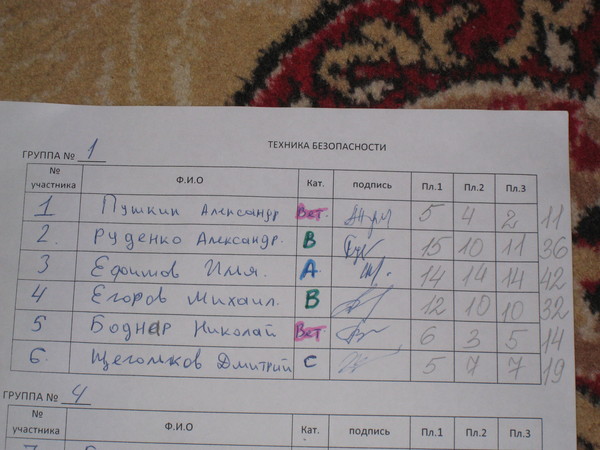 ТЕХНИКА БЕЗОПАСНОСТИ
ГРУППА № 1
№ участника Ф.И.О Кат. подпись Пл.1 Пл.2 Пл.3
1 Пушкин Александр Вет. 5 4 2 11
2. Руденко Александр. В 15 10 11 36
3 Ефимов Илья. А 14 14 14 42
4 Егоров Михаил. В 12 10 10 32
5 Боднар Николай Вет 6 3 5 14
6. Щеголков Дмитрий С 5 7 7 19
ГРУППА № 4
№ участника Ф.И.О Кат. подпись Пл.1 Пл.2 Пл.3